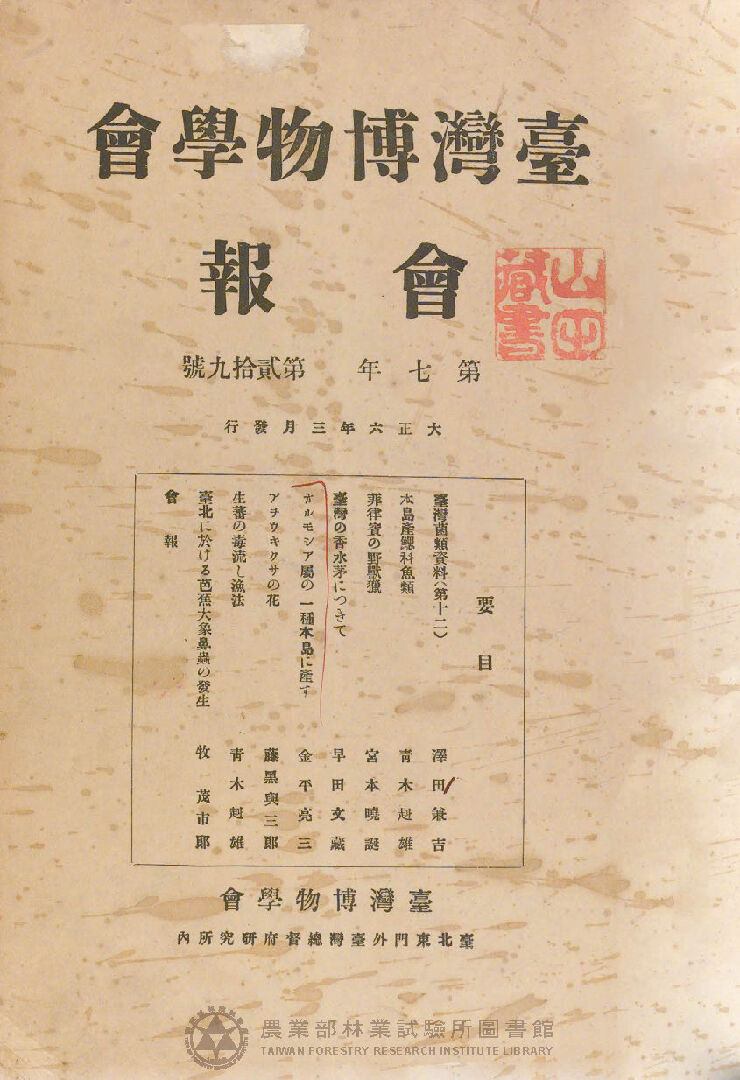 臺灣博物學會
會報
藏書
第七年 第貳拾九號
大正六年三月發行
要目
臺灣菌類資料(第十二) 澤田兼吉
本島產鰕科魚類 青木赳雄
菲律賓の野獸獵
早田文藏
臺灣の香水茅につきて
宮本
オルモシア屬の一種本島に產す 金平亮三
アヲウキクサの花 藤黑與三郎
生蕃の毒流し漁法 青木赳雄
臺北に於ける芭蕉大象鼻蟲の發生 牧茂市郎
會報
臺灣博物學會
臺北東門外臺灣總督府研究所內
農業部林業試驗所圖書館
TAIWAN FORESTRY RESEARCH INSTITUTE LIBRARY